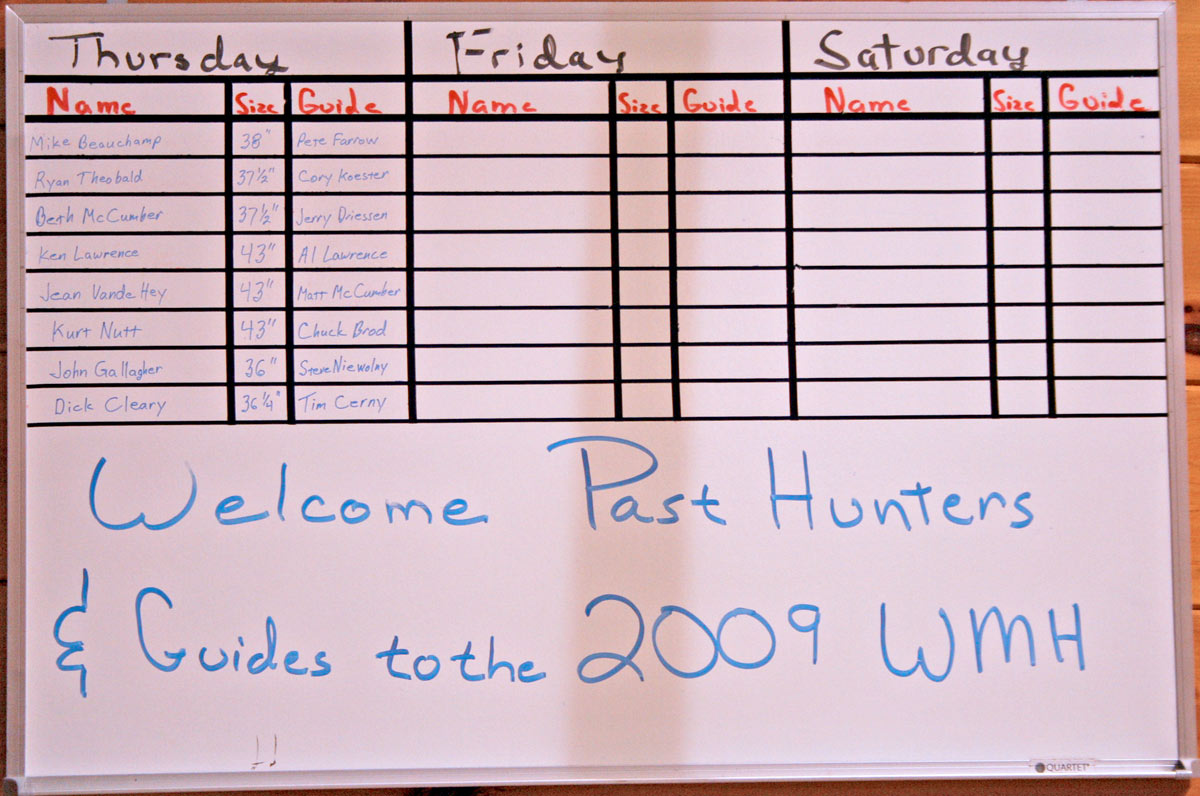 Thursday Friday Saturday
Name Size Guide Name Size Guide Name Size Guide
Mike Beauchamp 38" Pete Farrow
Ryan Theobald 37½" Cory Koester
Beth McCumber 37½" Jerry Driessen
Ken Lawrence 43" Al Lawrence
Jean Vande Hey 43" Matt McCumber
Kurt Nutt 43" Chuck Brod
John Gallagher 36" Steve Niewolny
Dick Cleary 36¼" Tim Cerny
Welcome Past Hunters
& Guides to the 2009 WMH
QUARTET